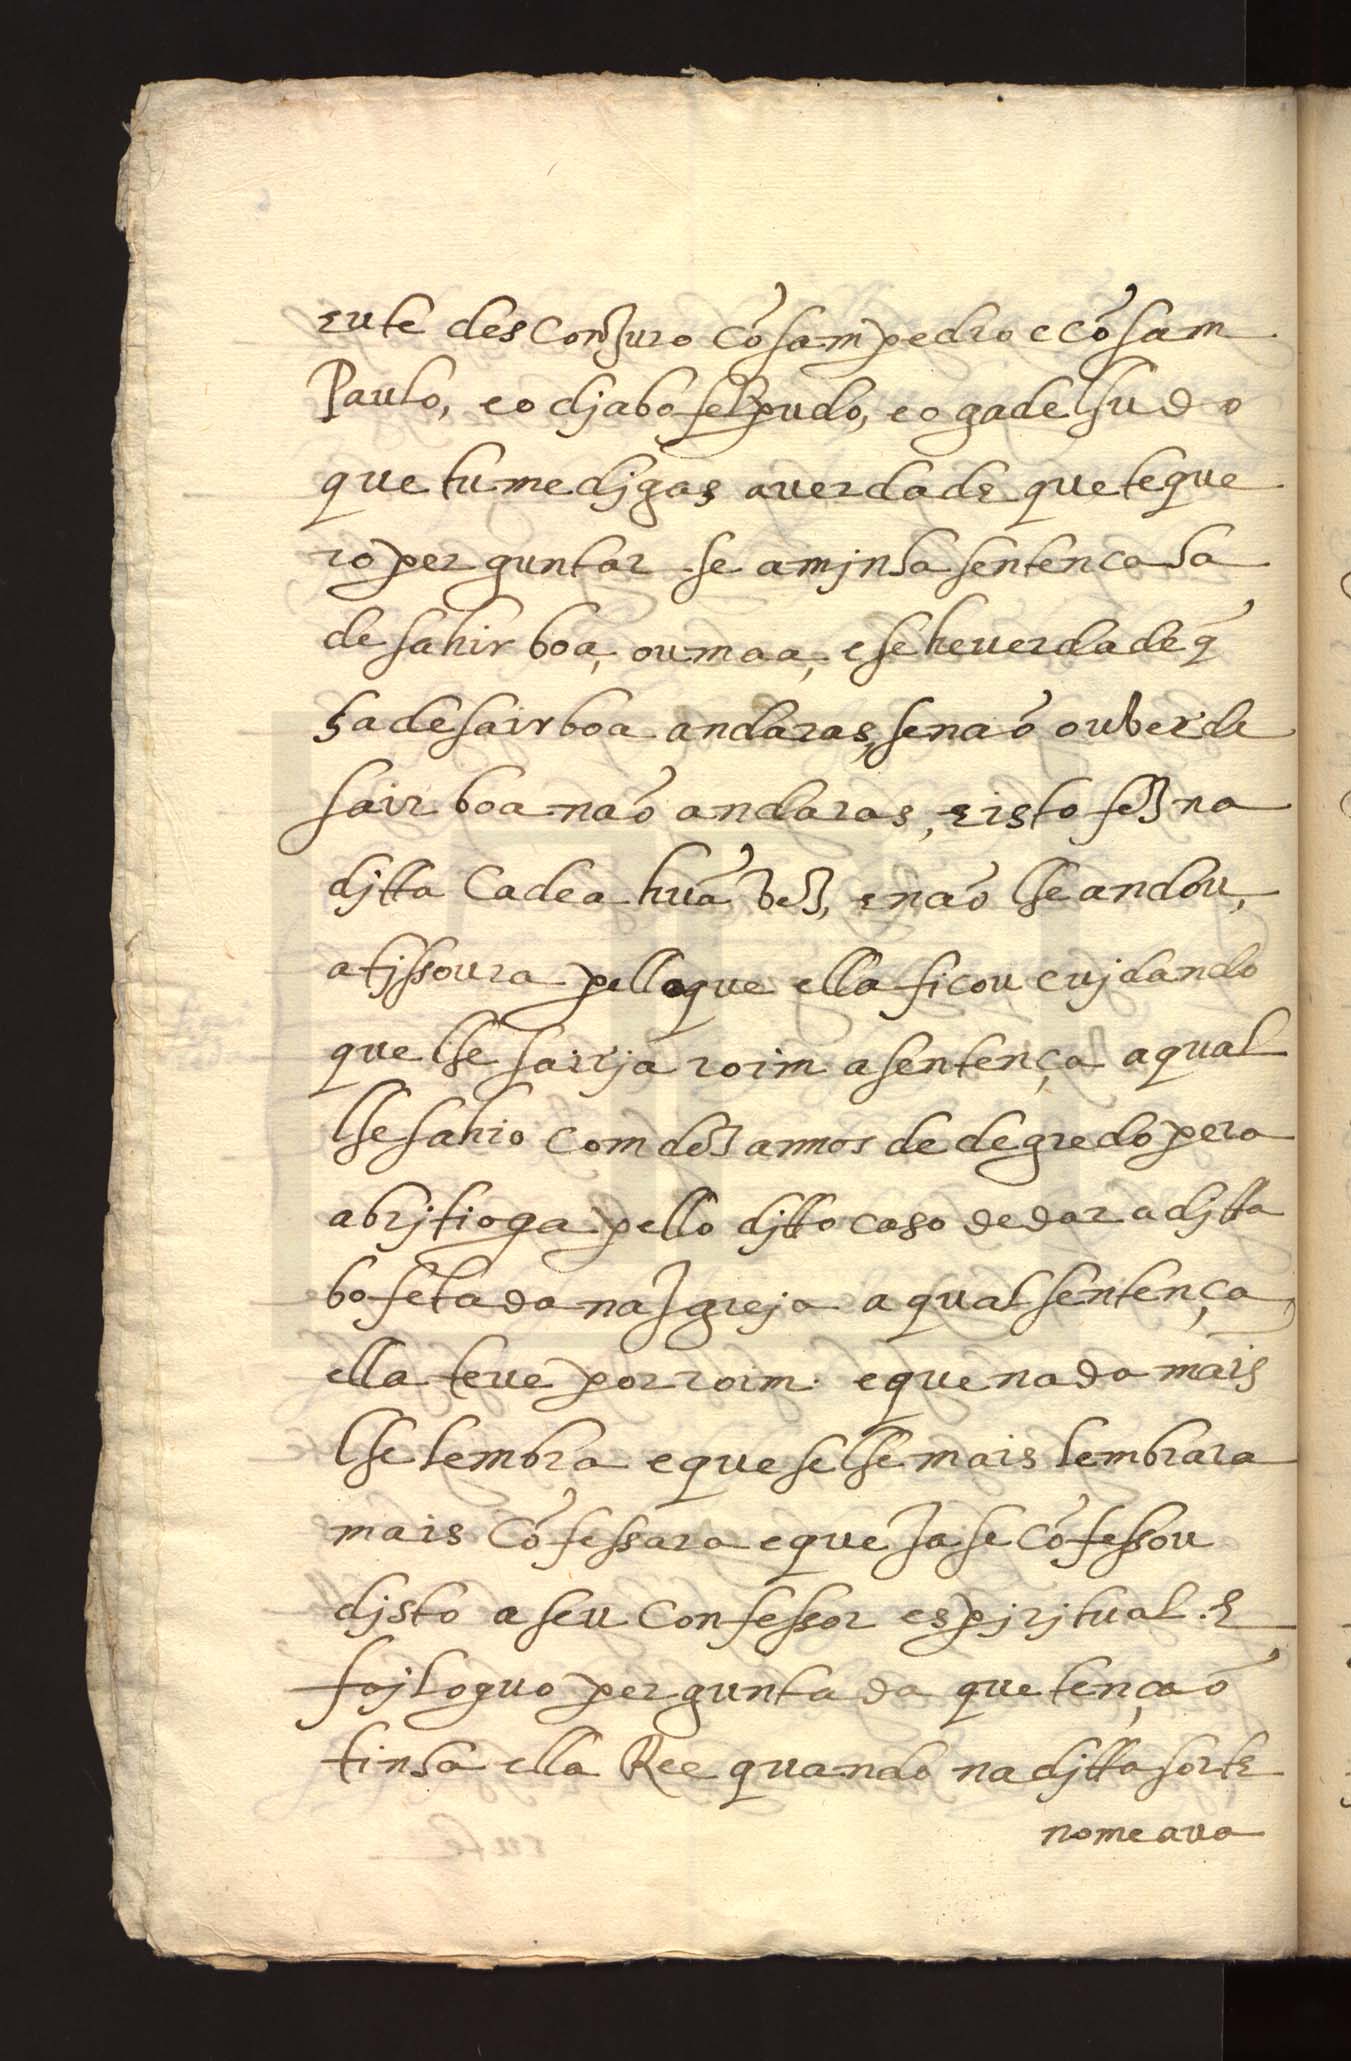 eu te desConJuro Cõ sam pedro e Cõ sam
Paulo, e o djabo felpudo, e o gadelhudo
que tu me djgas a uerdade que te que
ro perguntar se a mjnha sentenca ha
de sahir boa, ou maa, e se he uerdade q̃
ha de sair boa andaras, se naõ ouber de
sair boa naõ andaras, e isto fez na
djtta Cadea huã vez, e naõ lhe andou,
a tjssoura pello que ella ficou cujdando
que lhe sairja roim a sentença a qual
lhe sahio com dez annos de degredo pera
a brjtioga pello djtto caso de dar a djtta
bofetada na Igreja a qual sentença
ella teue por roim. e que nada mais
lhe lembra e que se lhe mais lembrara
mais Cõfessara e que Ja se Cõfessou
djsto a seu Confessor espjrjtual. E
foj loguo perguntada que tençaõ
tinha ella Ree quando na djtta sorte
nomeaua